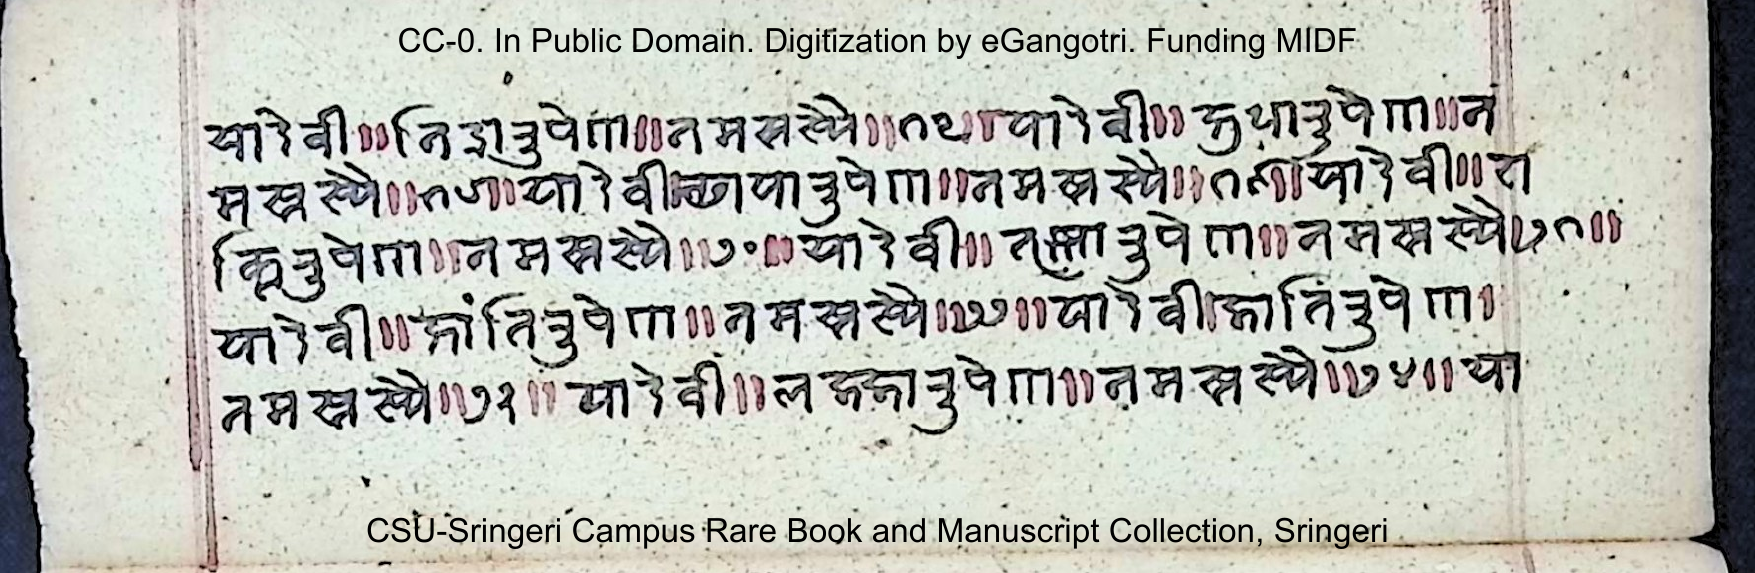 CC-0. In Public Domain. Digitization by eGangotri. Funding MIDF
या देवी ॥ निद्रारुपेण ॥ नमस्तस्यै ॥ १८ ॥ या देवी ॥ क्षुधारुपेण ॥ न
मस्तस्यै ॥ १९ ॥ या देवी छायारुपेण ॥ नमस्तस्यै ॥ या देवी ॥ श
क्तिरुपेण ॥ नमस्तस्यै ॥ या देवी ॥ तृष्णारुपेण ॥ नमस्तस्यै ॥
या देवी ॥ क्षांतिरुपेण ॥ नमस्तस्यै ॥ या देवी जातिरुपेण ।
नमस्तस्यै ॥ या देवी ॥ लज्जारुपेण ॥ नमस्तस्यै ॥ या
CSU-Sringeri Campus Rare Book and Manuscript Collection, Sringeri